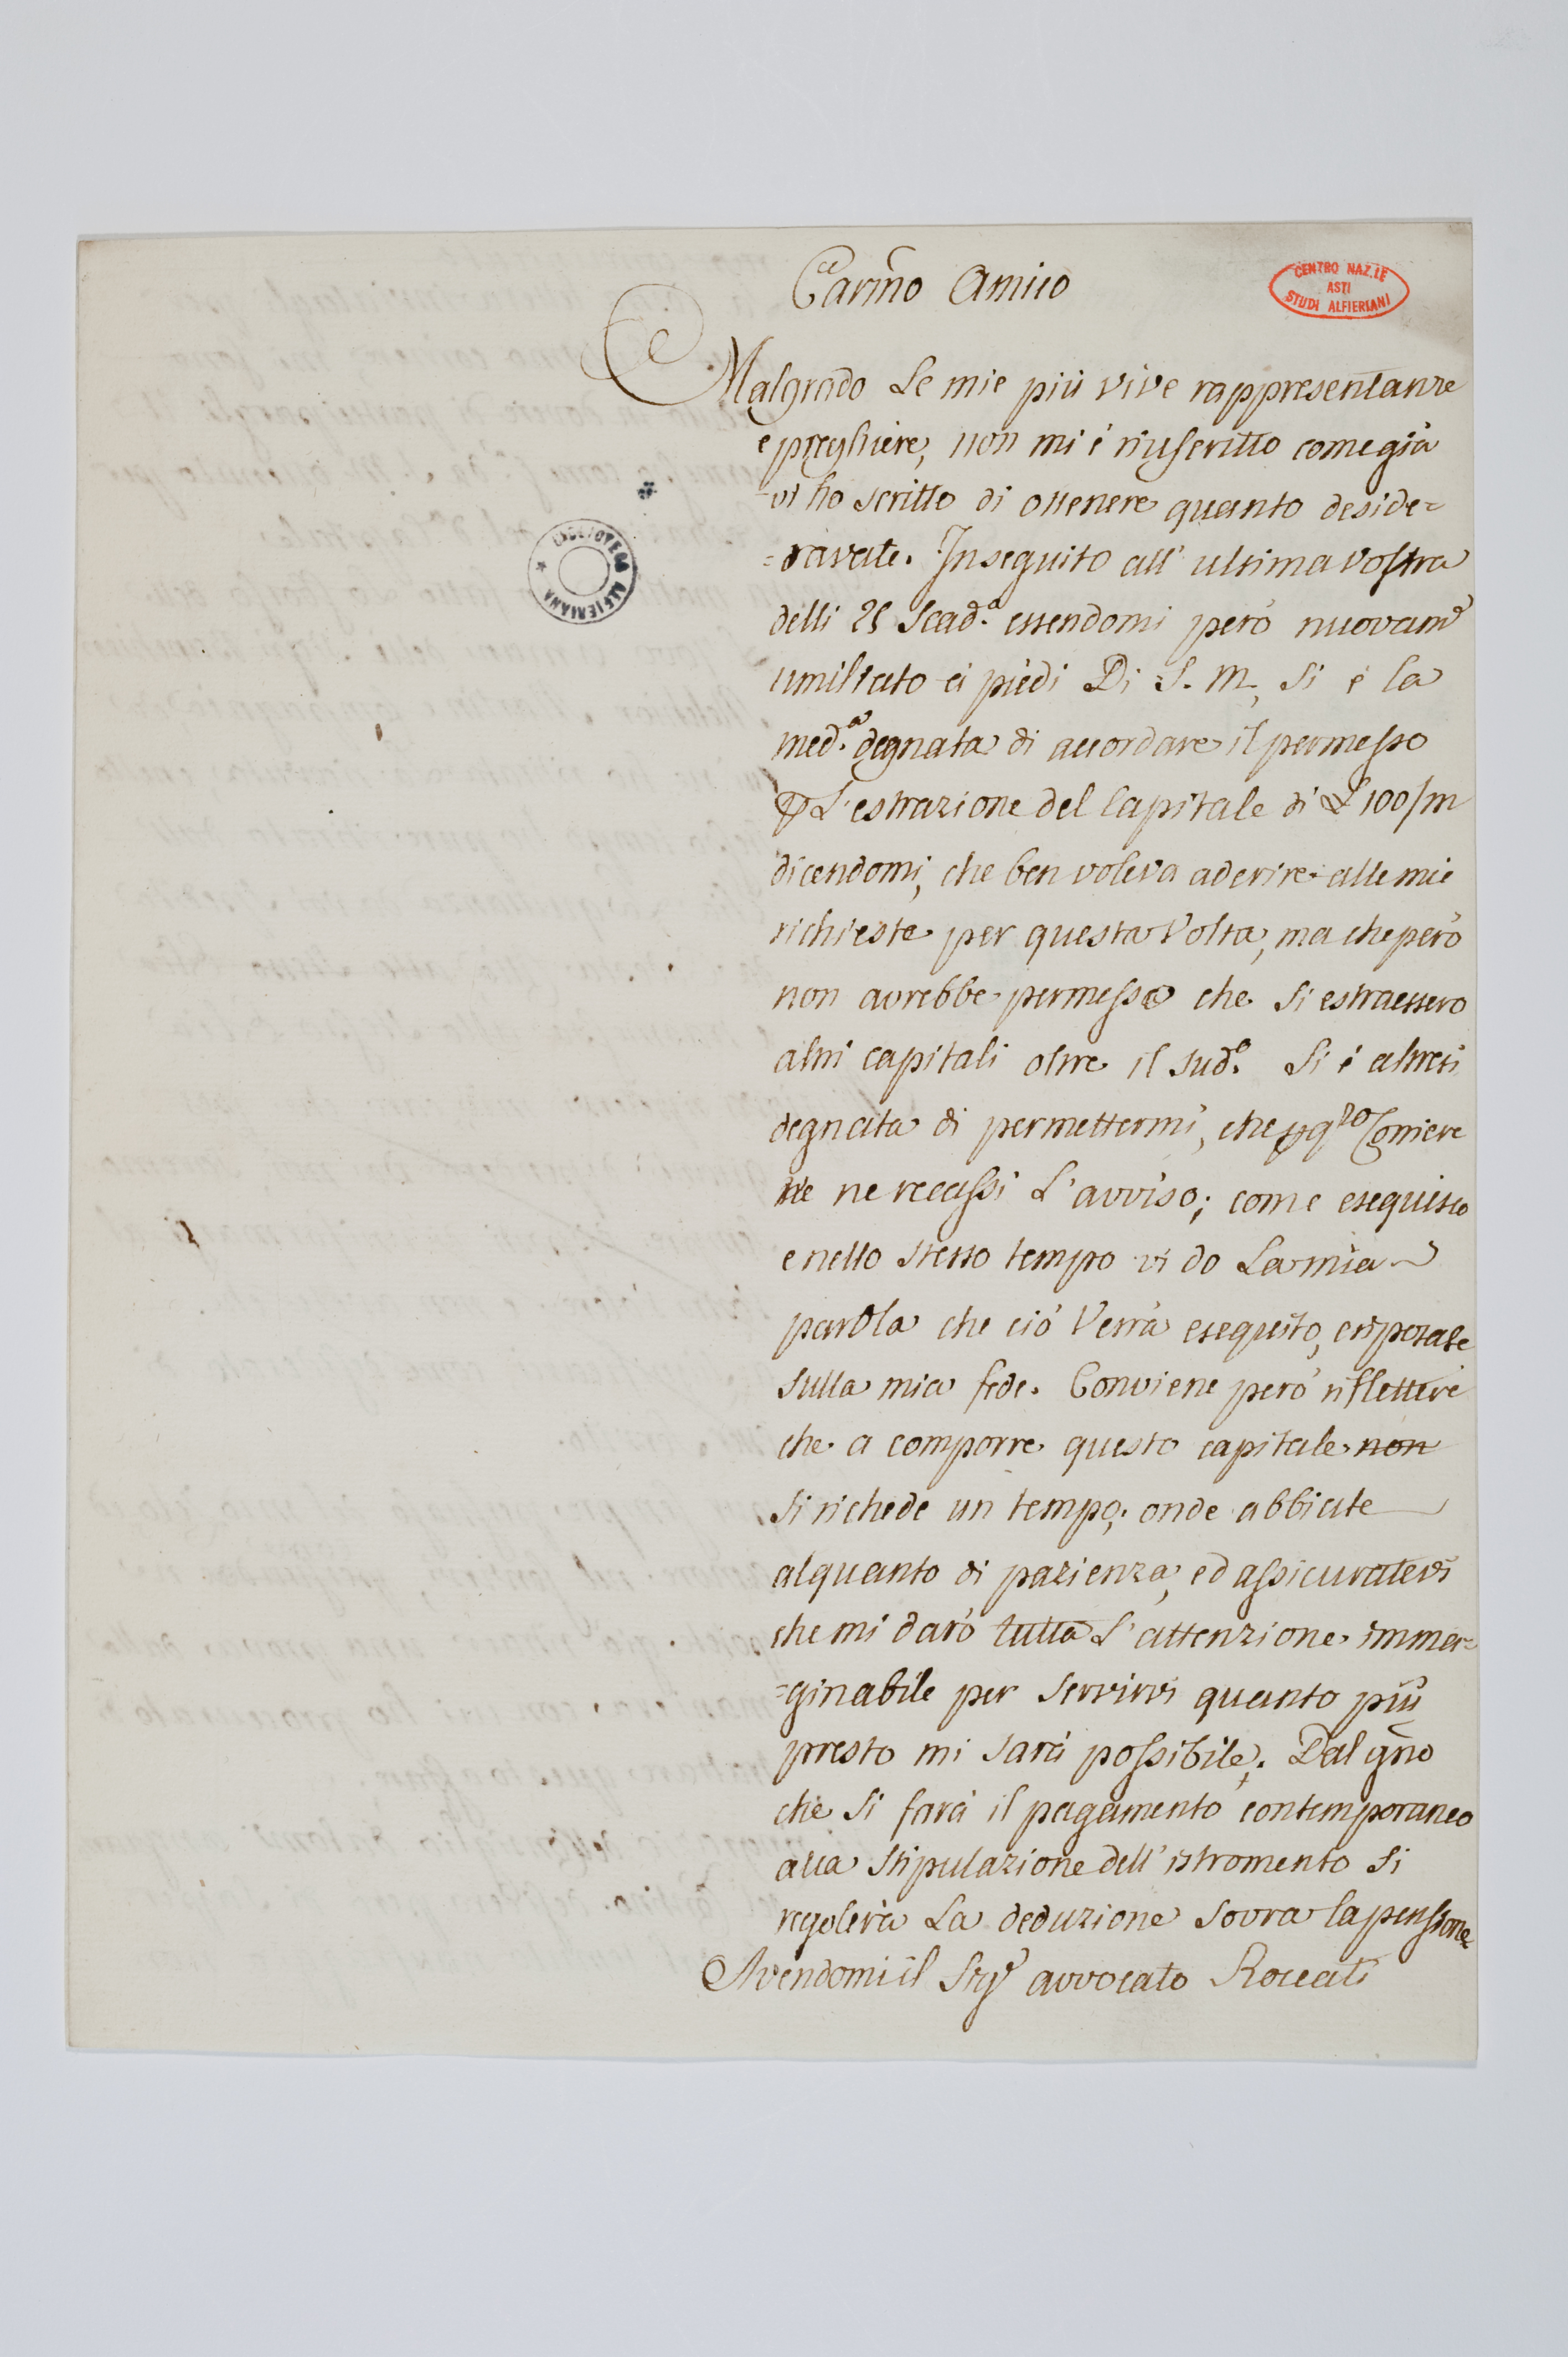 Carmo Amico
CENTRO NAZ.LE
ASTI
STUDI ALFIERIANI
Malgrado Le mie più vive rappresentanze
e preghiere, non mi è riuscritto come già
vi ho scritto di ottenere quanto deside=
=ravate. In seguito all' ultima vostra
delli 25 scad.a essendomi però nuovame
umiliato ai piedi Di S. M, si è la
med.a degnata di accordare il permesso
p L'estrazione del Capitale di L 100/m
dicendomi, che ben voleva aderire alle mie
richieste per questa Volta, ma che però
non avrebbe permesso che si estraessero
altri capitali oltre il sud.o Si è altresì
degnata di permettermi, che p qto Corriere
ne recassi L'avviso; come eseguisco
e nello stesso tempo vi do La mia
parola che ciò Verrà eseguito, e riposate
sulla mia fede. Conviene però riflettere
che a comporre questo capitale non
si richede un tempo; onde abbiate
alquanto di pazienza, ed assicuratevi
che mi darò tutta L'attenzione imma=
=ginabile per servirvi quanto più
presto mi sarà possibile. Dal gno
che si farà il pagamento contemporaneo
alla stipulazione dell' istromento si
regolerà La deduzione sovra la pensione
Avendomi il Sigr avvocato Roccati